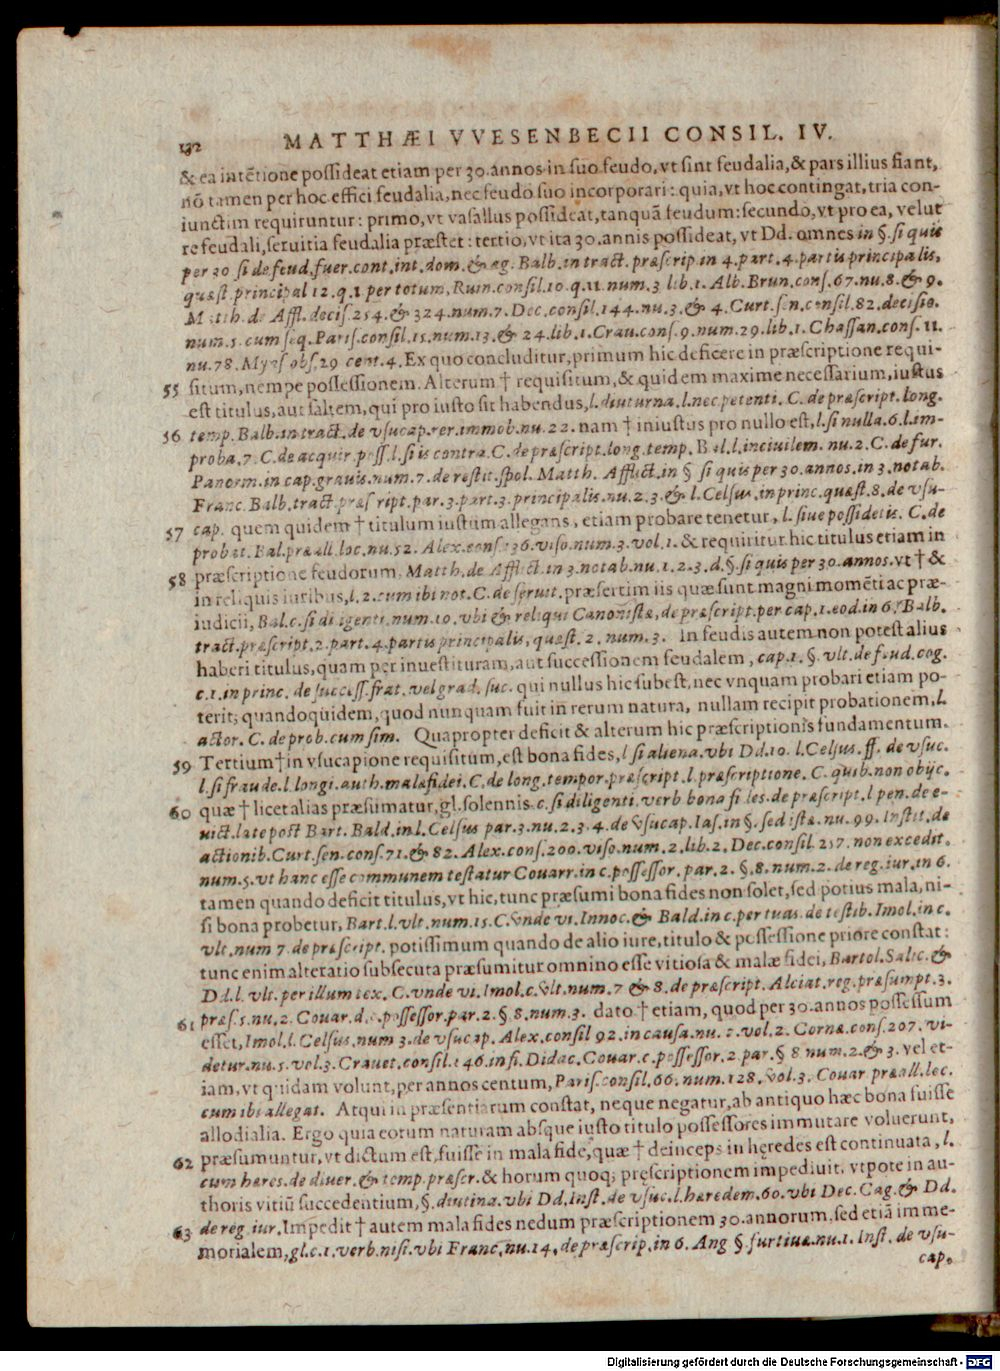 132 MATTHÆI VVESENBECII CONSIL. IV.
& ea intētione possideat etiam per 30. annos in suo feudo, vt sint feudalia, & pars illius fiant,
nō tamen per hoc effici feudalia, nec feudo suo incorporari: quia, vt hoc contingat, tria con-
iunctim requiruntur: primo, vt vasallus possideat, tanquā feudum: secundo, vt pro ea, velut
re feudali, seruitia feudalia præstet: tertio, vt ita 30. annis possideat, vt Dd. omnes in §. si quis
per 30 si de feud. fuer. cont. int. dom. & ag. Balb. in tract. præscrip. in 4. part. 4. partis principalis,
quæst. principal 12. q. 1 per totum, Ruin. consil. 10. q. 11. num. 3 lib. 1. Alb. Brun. cons. 67. nu. 8. & 9.
Matth. de Affl. decis. 254. & 324. num. 7. Dec. consil. 144. nu. 3. & 4. Curt. sen. consil. 82. decisio.
num. 5. cum seq. Paris. consil. 15. num. 13. & 24. lib. 1. Crau. cons. 9. num. 29. lib. 1. Chassan. cons. 11.
nu. 78. Myns obs. 29 cent. 4. Ex quo concluditur, primum hic deficere in præscriptione requi-
55 situm, nempe possessionem. Alterum † requisitum, & quidem maxime necessarium, iustus
est titulus, aut saltem, qui pro iusto sit habendus, l. diuturna. l. nec petenti. C. de præscript. long.
56 temp. Balb. in tract. de vsucap. rer. immob. nu. 22. nam † iniustus pro nullo est, l. si nulla. 6. l. im-
proba. 7. C. de acquir. poss. l. si is contra. C. de præscript. long. temp. Bal. l. inciuilem. nu. 2. C. de fur.
Panorm. in cap. grauis. num. 7. de restit. spol. Matth. Afflict. in § si quis per 30. annos. in 3. notab.
Franc. Balb. tract. præscript. par. 3. part. 3. principalis. nu. 2. 3. & l. Celsus. in princ. quæst. 8. de vsu-
57 cap. quem quidem † titulum iustum allegans, etiam probare tenetur, l. siue possidetis. C. de
probat. Bal. præall. loc. nu. 52. Alex. cons. 136. viso. num. 3. vol. 1. & requiritur hic titulus etiam in
58 præscriptione feudorum, Matth. de Afflict. in 3. notab. nu. 1. 2. 3. d. §. si quis per 30. annos. vt † &
in reliquis iuribus, l. 2. cum ibi not. C. de seruit. præsertim iis quæ sunt magni momēti ac præ-
iudicii, Bal. c. si diligenti. num. 10. vbi & reliqui Canonistæ, de præscript. per cap. 1. eod. in 6. Balb.
tract. præscript. 2. part. 4. partis principalis, quæst. 2. num. 3. In feudis autem non potest alius
haberi titulus, quam per inuestituram, aut successionem feudalem, cap. 1. §. vlt. de feud. cog.
c. 1. in princ. de success. frat. vel grad. suc. qui nullus hic subest, nec vnquam probari etiam po-
terit; quandoquidem, quod nunquam fuit in rerum natura, nullam recipit probationem, l.
actor. C. de prob. cum sim. Quapropter deficit & alterum hic præscriptionis fundamentum.
59 Tertium † in vsucapione requisitum, est bona fides, l si aliena. vbi Dd. 10. l. Celsus. ff. de vsuc.
l. si fraude. l. longi. auth. malæ fidei. C. de long. tempor. præscript. l. præscriptione. C. quib. non obijc.
60 quæ † licet alias præsumatur, gl. solennis c. si diligenti. verb bona fides. de præscript. l pen. de e-
uict. late post Bart. Bald. in l. Celsus par. 3. nu. 2. 3. 4. de vsucap. Ias. in §. sed istæ. nu. 99. Instit. de
actionib. Curt. sen. cons. 71. & 82. Alex. cons. 200. viso. num. 2. lib. 2. Dec. consil. 257. non excedit.
num. 5. vt hanc esse communem testatur Couarr. in c. possessor. par. 2. §. 8. num. 2. de reg. iur. in 6.
tamen quando deficit titulus, vt hic, tunc præsumi bona fides non solet, sed potius mala, ni-
si bona probetur, Bart. l. vlt. num. 15. C. vnde vi. Innoc. & Bald. in c. per tuas. de testib. Imol. in c.
vlt. num 7. de præscript. potissimum quando de alio iure, titulo & possessione priore constat:
tunc enim alteratio subsecuta præsumitur omnino esse vitiosa & malæ fidei, Bartol. Salic. &
Dd. l. vlt. per illum tex. C. vnde vi. Imol. c. vlt. num. 7 & 8. de præscript. Alciat. reg. præsumpt. 3.
61 præs. 5. nu. 2. Couar. d. c. possessor. par. 2. §. 8. num. 3. dato † etiam, quod per 30. annos possessum
esset, Imol. l. Celsus. num 3. de vsucap. Alex. consil 92. in causa. nu. vol. 2. Corneæ. cons. 207. vi-
detur. nu. 5. vol. 3. Crauet. consil. 146. in fi. Didac. Couar. c. possessor. 2. par. § 8 num. 2. & 3. vel et-
iam, vt quidam volunt, per annos centum, Paris. consil. 66. num. 128. vol. 3. Couar præall. lec.
cum ibi allegat. Atqui in præsentiarum constat, neque negatur, ab antiquo hæc bona fuisse
allodialia. Ergo quia eorum naturam absque iusto titulo possessores immutare voluerunt,
62 præsumuntur, vt dictum est, fuisse in mala fide, quæ † deinceps in hęredes est continuata, l.
cum hæres. de diuer. & temp. præscr. & horum quoq; pręscriptionem impediuit, vtpote in au-
thoris vitiū succedentium, §. diutina. vbi Dd. Inst. de vsuc. l. hæredem. 60. vbi Dec. Cag. & Dd.
63 de reg. iur. Impedit † autem mala fides nedum præscriptionem 30. annorum, sed etiā imme-
morialem, gl. c. 1. verb. nisi. vbi Franc. nu. 14. de præscrip. in 6. Ang § furtiua. nu. 1. Inst. de vsu-
cap.
Digitalisierung gefördert durch die Deutsche Forschungsgemeinschaft - DFG